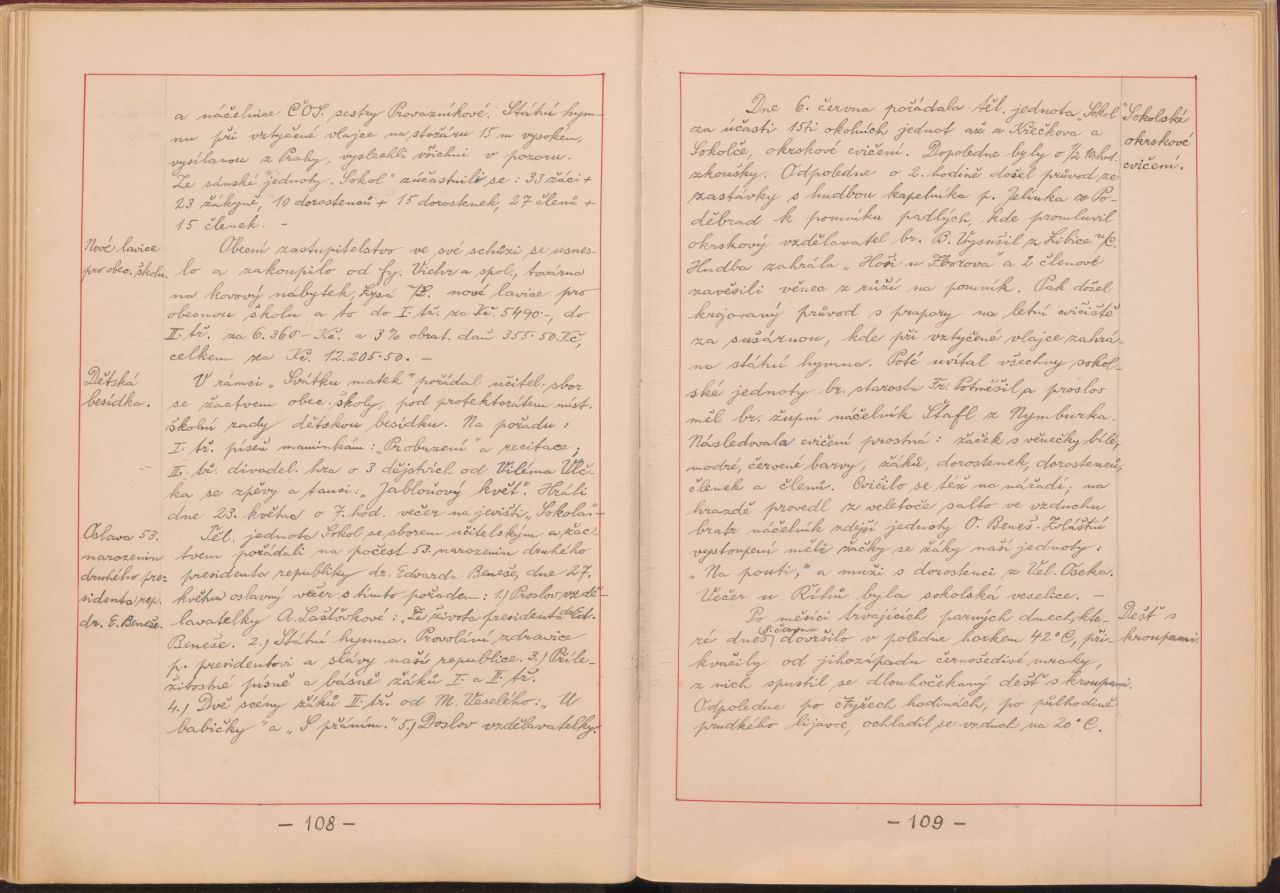 a náčelnice ČOS. sestry Provazníkové. Státní hym-
nu při vztyčené vlajce na stožáru 15 m vysokém,
vysílanou z Prahy, vyslechli všichni v pozoru.
Ze sánské jednoty „Sokol" zúčastnili se: 33 žáci +
23 žákyně, 10 dorostenců + 15 dorostenek, 27 členů +
15 členek. -
Nové lavice
pro obec. školu.
Obecní zastupitelstvo ve své schůzi se usnes-
lo a zakoupilo od fy. Vichr a spol., továrna
na kovový nábytek, Lysá n/L. nové lavice pro
obecnou školu a to do I. tř. za Kč. 5490-, do
II. tř. za 6.360- Kč. a 3% obrat. daň 355·50 Kč,
celkem za Kč. 12.205·50. -
Dětská
besídka.
V rámci „Svátku matek" pořádal učitel. sbor
se žactvem obec. školy, pod protektorátem míst.
školní rady dětskou besídku. Na pořadu:
I. tř. píseň maminkám: „Probuzení" a recitace;
II. tř. divadel. hra o 3 dějstvích od Viléma Vlč-
ka se zpěvy a tanci: „Jabloňový květ". Hráli
dne 23. května o 7. hod. večer na jevišti „Sokola". -
Oslava 53.
narozenin
druhého pre-
sidenta rep.
dr. E. Beneše.
Těl. jednota Sokol se sborem učitelským a žac-
tvem pořádali na počest 53. narozenin druhého
presidenta republiky dr. Edvarda Beneše, dne 27.
května oslavný večer s tímto pořadem: 1.) Proslov vzdě-
lavatelky A. Laštovkové: „Ze života presidenta dr. Ed.
Beneše. 2.) Státní hymna. Provolání zdravice
p. presidentovi a slávy naší republice. 3.) Příle-
žitostné písně a básně žáků I. a II. tř.
4.) Dvě scény žáků II. tř. od M. Veselého: „U
babičky" a „S přáním." 5.) Doslov vzdělavatelky.
- 108 -
Dne 6. června pořádala těl. jednota „Sokol"
za účasti 15ti okolních jednot až z Křečkova a
Sokolče, okrskové cvičení. Dopoledne byly o 1/2 10 hod.
zkoušky. Odpoledne o 2. hodině došel průvod ze
zastávky s hudbou kapelníka p. Jelínka z Po-
děbrad k pomníku padlých, kde promluvil
okrskový vzdělavatel br. B. Vysušil z Libice n/C.
Hudba zahrála „Hoši u Zborova" a 2 členové
zavěsili věnec z růží na pomník. Pak došel
krojovaný průvod s prapory na letní cvičiště
za sušárnou, kde při vztyčené vlajce zahrá-
na státní hymna. Poté uvítal všechny sokol-
ské jednoty br. starosta Fr. Potměšil, a proslov
měl br. župní náčelník Štafl z Nymburka.
Následovala cvičení prostná: žaček s věnečky bílé,
modré, červené barvy, žáků, dorostenek, dorostenců,
členek a členů. Cvičilo se též na nářadí, na
hrazdě provedl z veletoče salto ve vzduchu
bratr náčelník zdejší jednoty O. Beneš. Zvláštní
vystoupení měli žačky se žáky naší jednoty:
„Na pouti," a muži s dorostenci z Vel. Oseka.
Večer u Říhů byla sokolská veselice. -
Sokolské
okrskové
cvičení.
Po měsíci trvajících parných dnech, kte-
ré dnes, 8. června dovršilo v poledne horkem 42°C, při-
kvačily od jihozápadu černošedivé mraky,
z nich spustil se dlouhočekaný déšť s kroupami.
Odpoledne po čtyřech hodinách, po půlhodině
prudkého lijavce, ochladil se vzduch na 20°C.
Déšť s
kroupami.
- 109 -